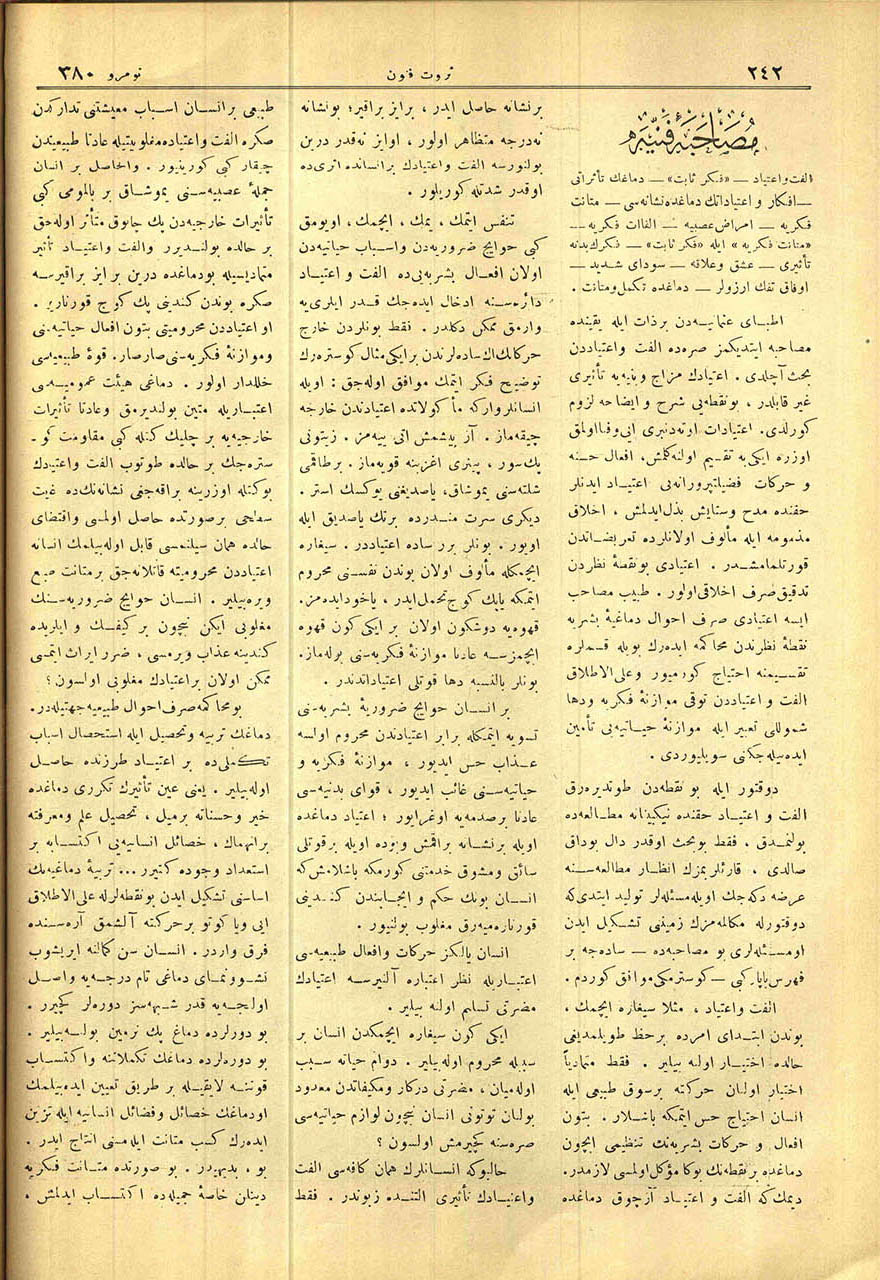 ٢٤٢
ثروت فنون
نومرو ٣٨٠
مُصَاحَبَهٔ فَنِّیَه
الفت واعتیاد — «فکر ثابت» — دماغك تأثراتی
— افکار و اعتیاداتك دماغده نشانه‌سی — متانت
فکریه — امراض عصبیه — الفات فکریه —
«متانت فکریه» ایله «فکر ثابت» — فکرك بدنه
تأثیری — عشق وعلاقه — سودای شدید —
اوفاق تفك ارزولر — دماغده تکمل ومتانت .
اطبای عثمانیه‌دن برذات ایله یقینده
مصاحبه ایتدیکمز صره‌ده الفت واعتیاددن
بحث آچلدی . اعتیادك مزاج وبنیه‌یه تأثیری
غیر قابلدر ، بونقطه‌یی شرح و ایضاحه لزوم
کورلدی . اعتیادات اوته‌دنبری ایی وفنا اولمق
اوزره ایکی‌یه تقسیم اولنه‌کلمش ، افعال حسنه
و حرکات فضیلتپرورانه‌یی اعتیاد ایدنلر
حقنده مدح وستایش بذل ایدلمش ، اخلاق
مذمومه ایله مألوف اولانلرده تعریضاتدن
قورتلمامشدر . اعتیادی بونقطهٔ نظردن
تدقیق صرف اخلاقی اولور . طبیب مصاحب
ایسه اعتیادی صرف احوال دماغیهٔ بشریه
نقطهٔ نظرندن محاکمه ایده‌رك بویله قسملره
تقسیمنه احتیاج کورمیور وعلی الاطلاق
الفت و اعتیاددن توقی موازنهٔ فکریه ودها
شموللی تعبیر ایله موازنهٔ حیاتیه‌یی تأمین
ایده‌بیله‌جکنی سویلیوردی .
دوقتور ایله بو نقطه‌دن طوتدیره‌رق
الفت و اعتیاد حقنده نیکبینانه مطالعه‌ده
بولنمدق ، فقط بوبحث اوقدر دال بوداق
صالدی ، قارئلریمزك انظار مطالعه‌سنه
عرضه دکه‌جك اویله مسئله‌لر تولید ایتدی که
دوقتورله مکالمه‌مزك زمینی تشکیل ایدن
اومسئله‌لری بو مصاحبه‌ده — ساده‌جه بر
فهرس یاپار کبی — کوسترمکی موافق کوردم .
الفت واعتیاد ، مثلا سیغاره ایچمك ،
بوندن ابتدای امرده برحظ طویلمدیغی
حالده اختیار اولنه بیلیر . فقط متمادیاً
اختیار اولنان حرکته برسوق طبیعی ایله
انسان احتیاج حس ایتمکه باشلار . بتون
افعال و حرکات بشریه‌نك تنظیمی ایچون
دماغده برنقطه‌نك بوکا مؤکل اولمسی لازمدر .
دیمك که الفت و اعتیاد آزچوق دماغده
برنشانه حاصل ایدر ، برایز براقیر؛ بونشانه
نه‌درجه متظاهر اولور ، اوایز نه‌قدر درین
بولنورسه الفت واعتیادك برانسانده اثری‌ده
اوقدر شدتله کوریلور .
تنفس ایتمك ، یمك ، ایچمك ، اویومق
کبی حوایج ضروریه‌دن واسباب حیاتیه‌دن
اولان افعال بشریه‌یی‌ده الفت و اعتیاد
دائره‌سنه ادخال ایده‌جك قدر ایلری‌یه
وارمق ممکن دکلدر . فقط بونلردن خارج
حرکاتك اك ساده‌لرندن برایکی مثال کوستره‌رك
توضیح فکر ایتمك موافق اوله‌جق : اویله
انسانلر وارکه مأکولاتده اعتیادندن خارجه
چیقه‌ماز . آز پیشمش اتی ییه‌مز . زیتونی
پك سور ، پینری اغزینه قویه‌ماز . برطاقمی
شلته‌سنی یموشاق ، یاصدیغنی یوکسك استر .
دیکری سرت مندرده برتك یاصدیق ایله
اویور . بونلر برر ساده اعتیاددر . سیغاره
ایچمکله مألوف اولان بوندن نفسنی محروم
ایتمکه یاپك کوج تحمل ایدر ، یاخود ایده‌مز .
قهوه‌یه دوشکون اولان بر ایکی کون قهوه
ایچمزسه عادتا موازنهٔ فکریه‌سنی بوله‌ماز .
بونلر بالنسبه دها قوتلی اعتیاداتدندر .
بر انسان حوایج ضروریهٔ بشریه‌سنی
تسویه ایتمکله برابر اعتیادندن محروم اولسه
عذاب حس ایدیور ، موازنهٔ فکریه و
حیاتیه‌سنی غائب ایدیور ، قوای بدنیه‌سی
عادتا برصدمه‌یه اوغرایور ؛ اعتیاد دماغده
اویله برنشانه براقمش وبوده اویله برقوتلی
سائق ومشوق خدمتنی کورمکه باشلامش که
انسان بونك حکم و ایجابندن کندینی
قورتاره‌میه‌رق مغلوب بولنیور .
انسان یالکز حرکات وافعال طبیعیه‌سی
اعتباریله نظر اعتباره آلنیرسه اعتیادك
مضرتی تسلیم اولنه بیلیر .
ایکی کون سیغاره ایچمکدن انسان بر
سببله محروم اوله‌بیلیر . دوام حیاته سبب
اولمیان ، مضرتی درکار ومکیفاتدن معدود
بولنان توتونی انسان نیچون لوازم حیاتیه‌سی
صره‌سنه کچیرمش اولسون ؟
حالبوکه انسانلرك همان کافه‌سی الفت
واعتیادك تأثیری التنده زبوندر . فقط
طبیعی بر انسان اسباب معیشتنی تدارکدن
صکره الفت واعتیاده مغلوبیتیله عادتا طبیعیدن
چیقار کبی کورینیور . والحاصل بر انسان
جملهٔ عصبیه‌سنی یموشاق بر بالمومی کبی
تأثیرات خارجیه‌دن پك چابوق متأثر اوله‌جق
بر حالده بولندیرر والفت واعتیاد تأثیر
متمادیسیله بودماغده درین برایز براقیرسه
صکره بوندن کندینی پك کوج قورتاریر .
او اعتیاددن محرومیتی بتون افعال حیاتیه‌سنی
وموازنهٔ فکریه‌سنی صارصار . قوهٔ طبیعیه‌سی
خللدار اولور . دماغی هیئت عمومیه‌سی
اعتباریله متین بولندیرمق وعادتا تأثیرات
خارجیه‌یه بر چلیك کتله کبی مقاومت کو-
ستره‌جك بر حالده طوتوب الفت واعتیادك
بوکتله اوزرینه براقه‌جغی نشانه‌نك‌ده غایت
سطحی برصورتده حاصل اولمسی واقتضای
حالده همان سیلنمسی قابل اوله‌بیلمك انسانه
اعتیاددن محرومیته قاتلانه‌جق برمتانت طبع
ویره‌بیلیر . انسان حوایج ضروریه‌سنك
مغلوبی ایکن نیچون بر کیفك و ایلریده
کندینه عذاب ویرمسی ، ضرر ایراث ایتمسی
ممکن اولان براعتیادك مغلوبی اولسون ؟
بومحاکمه صرف احوال طبیعیه جهتیله‌در .
دماغك تربیه وتحصیل ایله استحصال اسباب
تکملی‌ده بر اعتیاد طرزنده حاصل
اوله‌بیلیر . یعنی عین تأثیرك تکرری دماغده
خیر وحسناته برمیل ، تحصیل علم ومعرفته
برانهماك ، خصائل انسانیه‌یی اکتسابه بر
استعداد وجوده کتیرر ... تربیهٔ دماغیه‌نك
اساسنی تشکیل ایدن بونقطه‌لرله علی الاطلاق
ایی ویا کوتو برحرکته آلشمق آره‌سنده
فرق واردر . انسان سن کمالنه ایریشوب
نشو ونمای دماغی تام درجه‌یه واصل
اولنجه‌یه قدر شبهه‌سز دوره‌لر کچیرر .
بو دورلرده دماغ پك نرمین بولنه‌بیلیر .
بو دوره‌لرده دماغك تکملاتنه واکتساب
قوتنه لایقیله بر طریق تعیین ایده‌بیلمك
اودماغك خصائل وفضائل انسانیه ایله تزین
ایده‌رك کسب متانت ایلمسنی انتاج ایدر .
بو ، بدیهیدر . بو صورتده متانت فکریه
دینلن خاصهٔ جمیله‌ده اکتساب ایدلمش ،